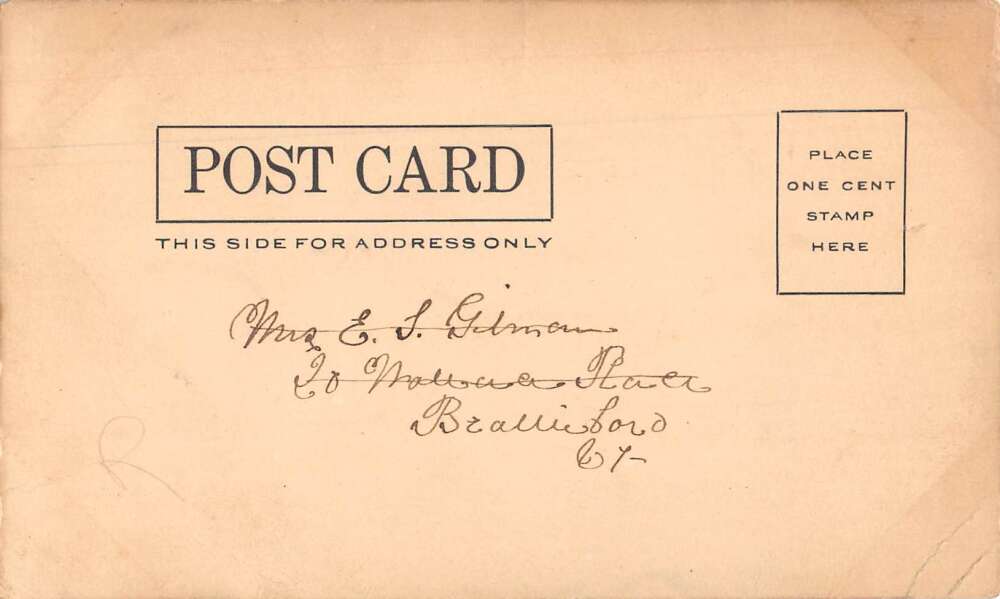 POST CARD
THIS SIDE FOR ADDRESS ONLY
PLACE
ONE CENT
STAMP
HERE
Mrs E. S. Gilman
Place
Brattleboro
Vt
R